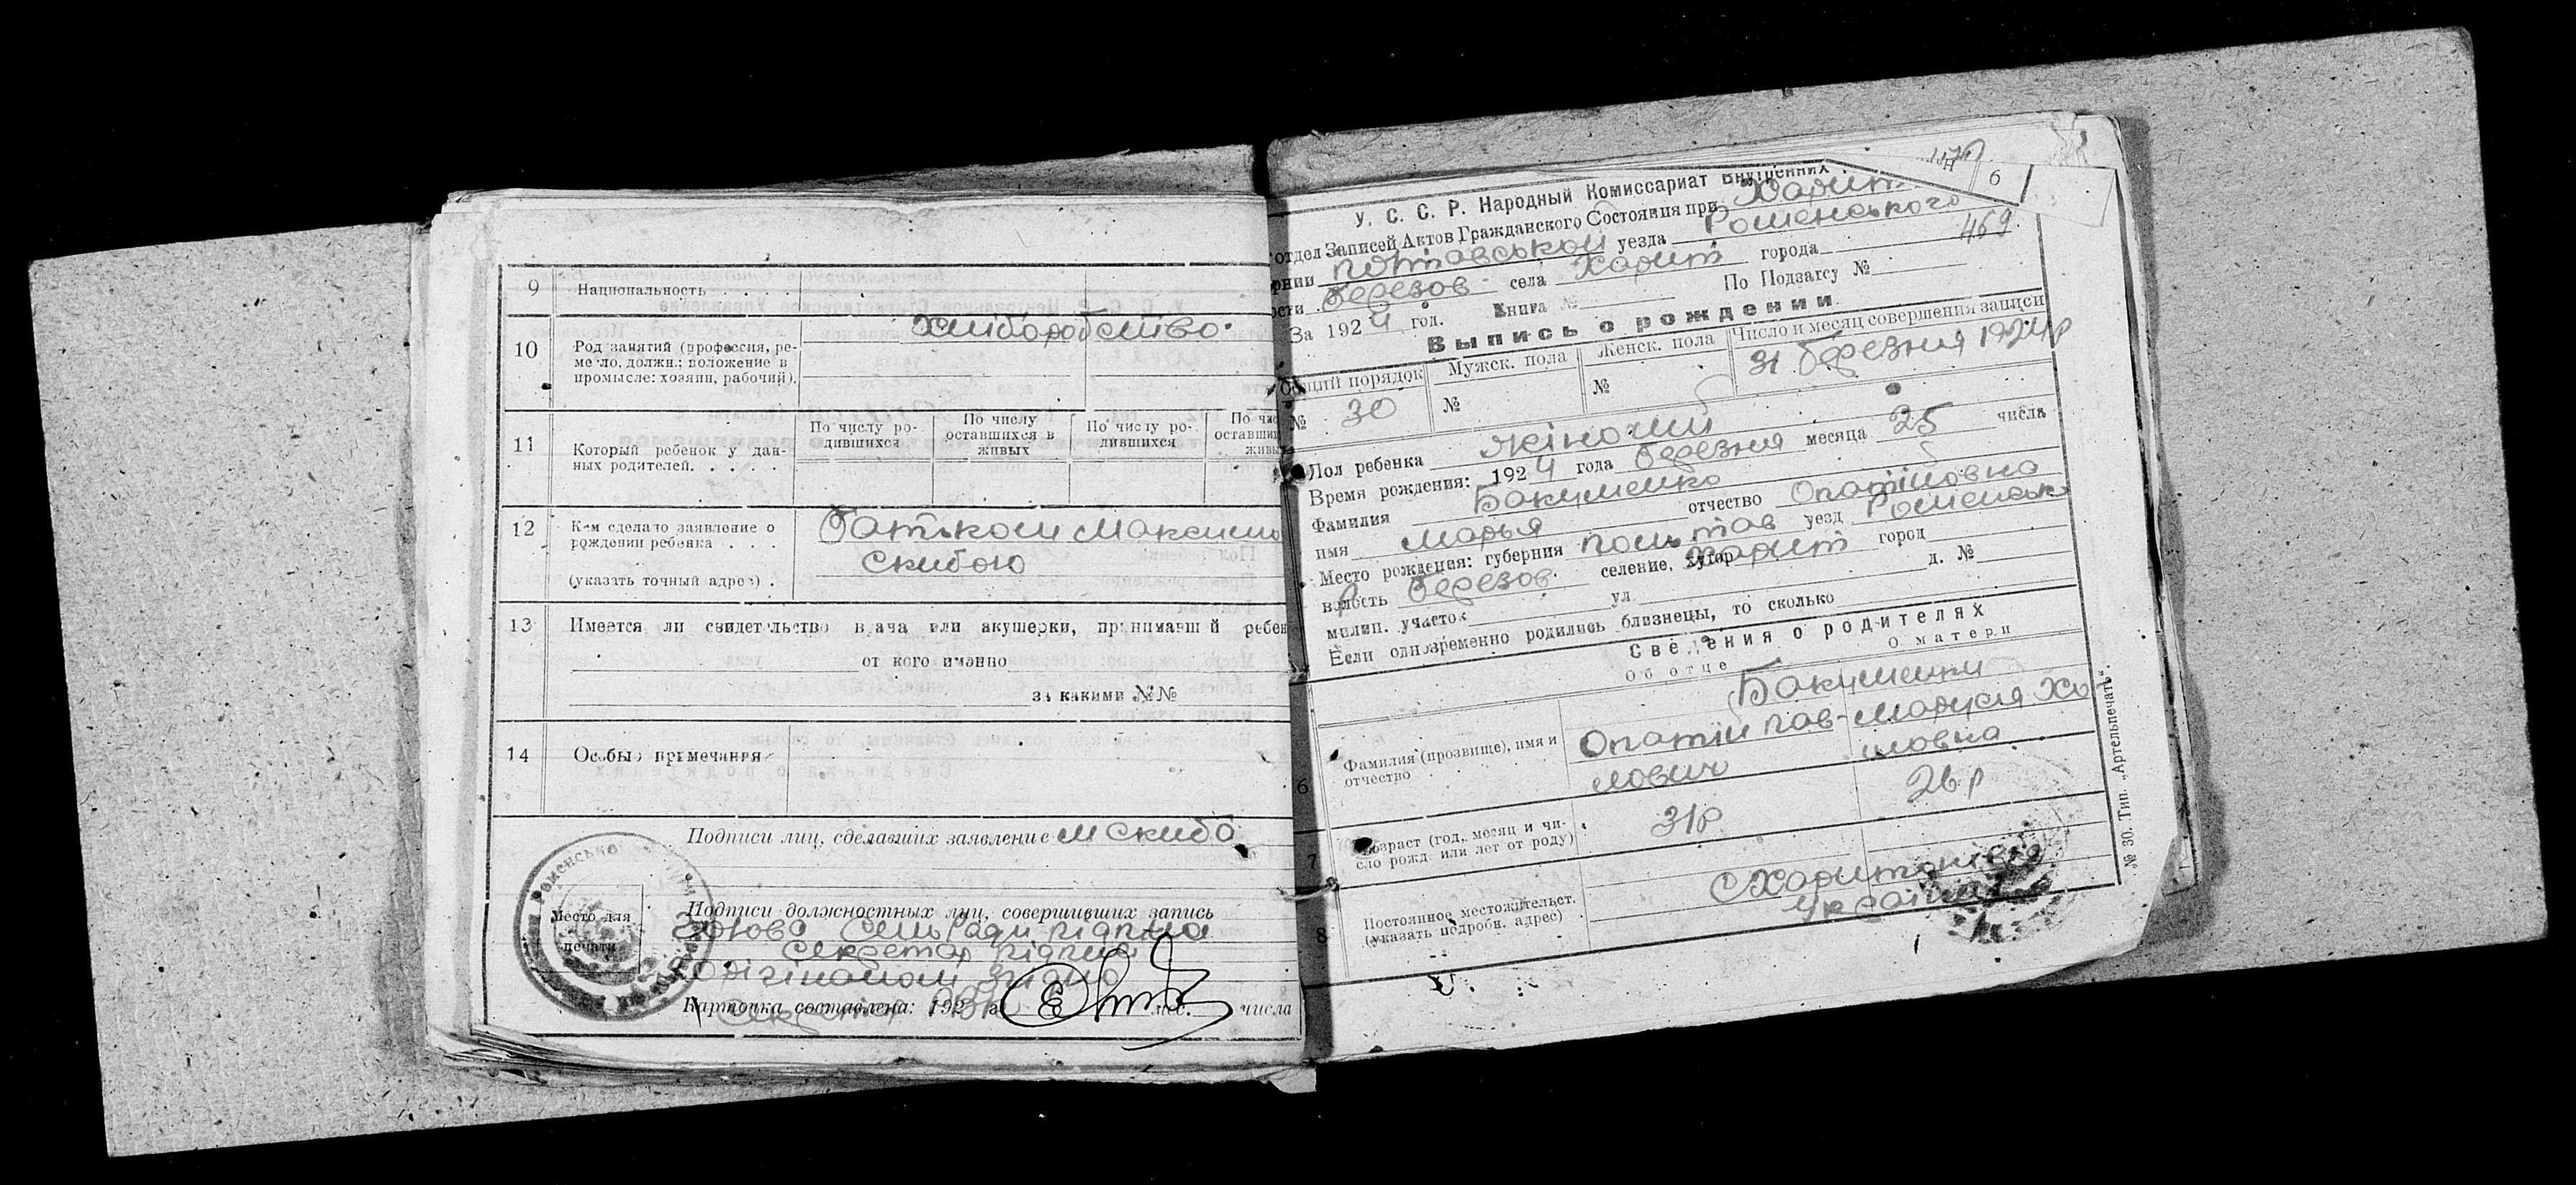 9 Национальность . . . .
10 Род занятий (профессия, ре-
ме-ло, должн.; положение в
промысле: хозяин, рабочий).
Хліборобство.
11 Который ребенок у дан-
ных родителей. . . . .
По числу ро-
дившихся
По числу
оставшихся в
живых
По числу ро-
дившихся
По чис
оставши
живы
12 Кем сделано заявление о
рождении ребенка . . .
(указать точный адрес) .
Батьком Максимо
Скибою
13 Имеется ли свидетельство врача или акушерки, принимавшей ребен
от кого именно
за какими №№
14 Особые примечания
Подписи лиц, сделавших заявление М Скиба
Подписи должностных лиц, совершивших запись
Голова Сельради підпис
Секретар підпис
З оригіналом згідно
Карточка составлена: 192 г. мес. числа
Место для
печати
6
У. С. С. Р. Народный Комиссариат Внутренних
отдел Записей Актов Гражданского Состояния при Харит
рнии Полтавської уезда Роменського
ости Березов села Харит города
469
За 1924 год. Книга № По Подзагсу №
Выпись о рождении
Общий порядок Мужск. пола Женск. пола Число и месяц совершения записи
№ 30 № № 31 березня 1924р
Пол ребенка жіночий
Время рождения: 1924 года березня месяца 25 числа
Фамилия Бакуменко
имя Марья отчество Опатіиовна
Место рождения: губерния Полтав уезд Роменськ
волость Березов. селение, хутор Харит город
милиц. участок ул. д. №
Если одновременно родились близнецы, то сколько
Сведения о родителях
Об отце О матери
Бакуменки
6 Фамилия (прозвище), имя и
отчество
Опатій Пав-
лович
Маруся Хо-
мовна
7 Возраст (год, месяц и чи-
сло рожд. или лет от роду)
31р
26 р
8 Постоянное местожительст.
(указать подробн. адрес)
С Харитонівка
Україна
№ 30. Тип. „Артельпечать".